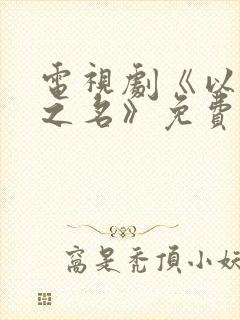 電視劇《以
之名》免費
窩是禿頂小妖